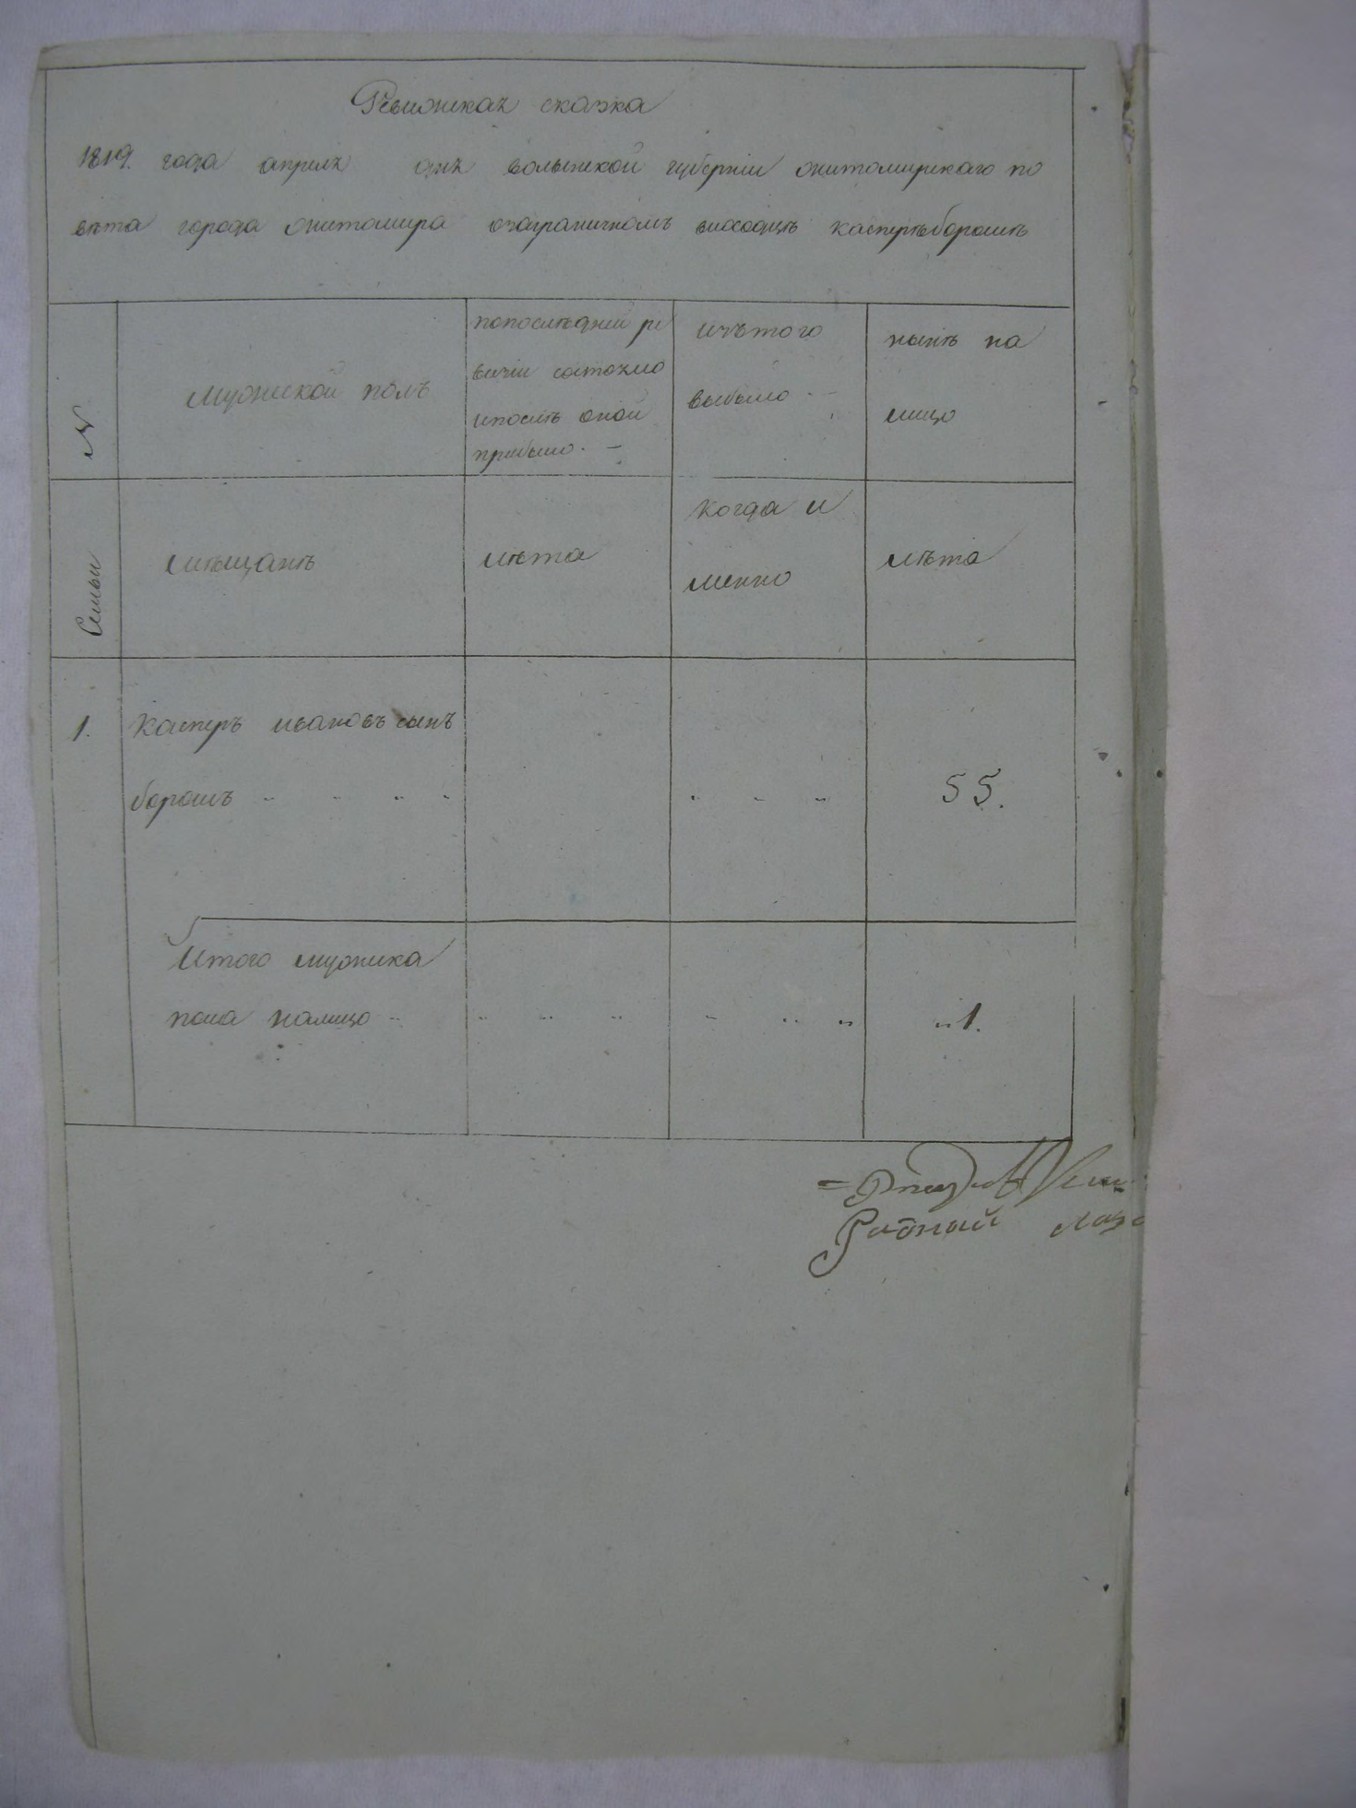 Ревижская сказка
1819. года апреля дня волынской губернии житомирскаго по
вѣта города житомира озаграничномъ виходцѣ касперѣ борошѣ
№
Семьи
мужеской полъ
попослѣдней ре
визіи состояло
ипослѣ оной
прибыло. –
изътого
выбыло. –
нынѣ на
лицо
мѣщанѣ
лѣта
когда и
менно
лѣта
1. касперъ ивановъ сынъ
борошъ 55.
Итого мужска
пола налицо 1.